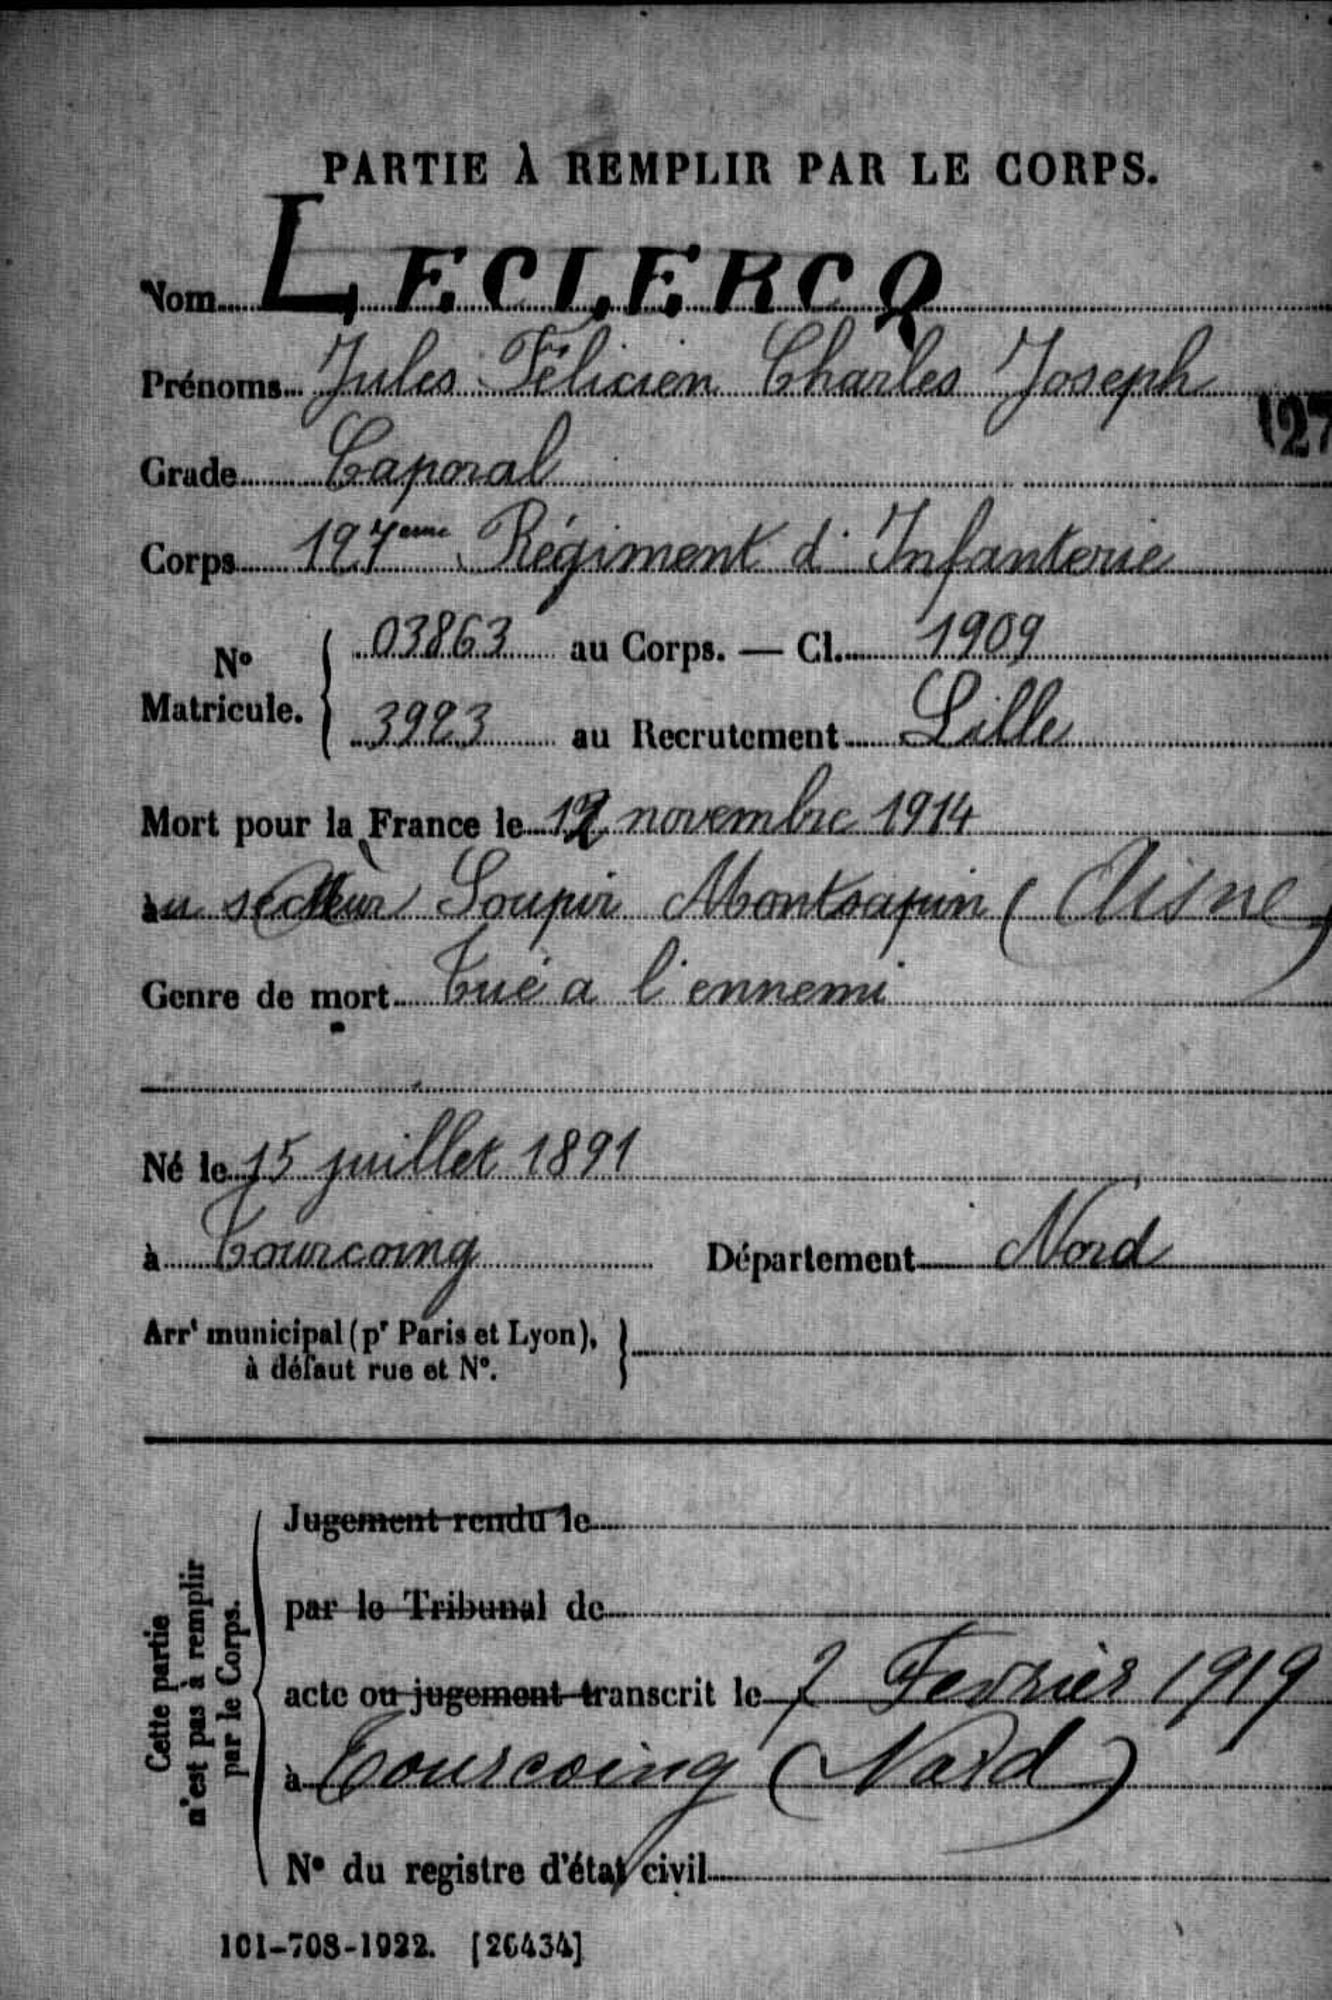 PARTIE À REMPLIR PAR LE CORPS.
Nom LECLERCQ
Prénoms Jules Félicien Charles Joseph
127
Grade Caporal
Corps 127eme Régiment d'Infanterie
N° Matricule. { 03863 au Corps. — Cl. 1909
3923 au Recrutement Lille
Mort pour la France le 12 novembre 1914
au secteur Soupir Montsapin (Aisne)
Genre de mort Tué a l'ennemi
Né le 15 juillet 1891
à Tourcoing Département Nord
Arrt municipal (pr Paris et Lyon),
à défaut rue et N°.
Cette partie
n'est pas à remplir
par le Corps.
Jugement rendu le
par le Tribunal de
acte ou jugement transcrit le 7 Fevrier 1919
à Tourcoing (Nord)
N° du registre d'état civil
101-708-1922. [26434]